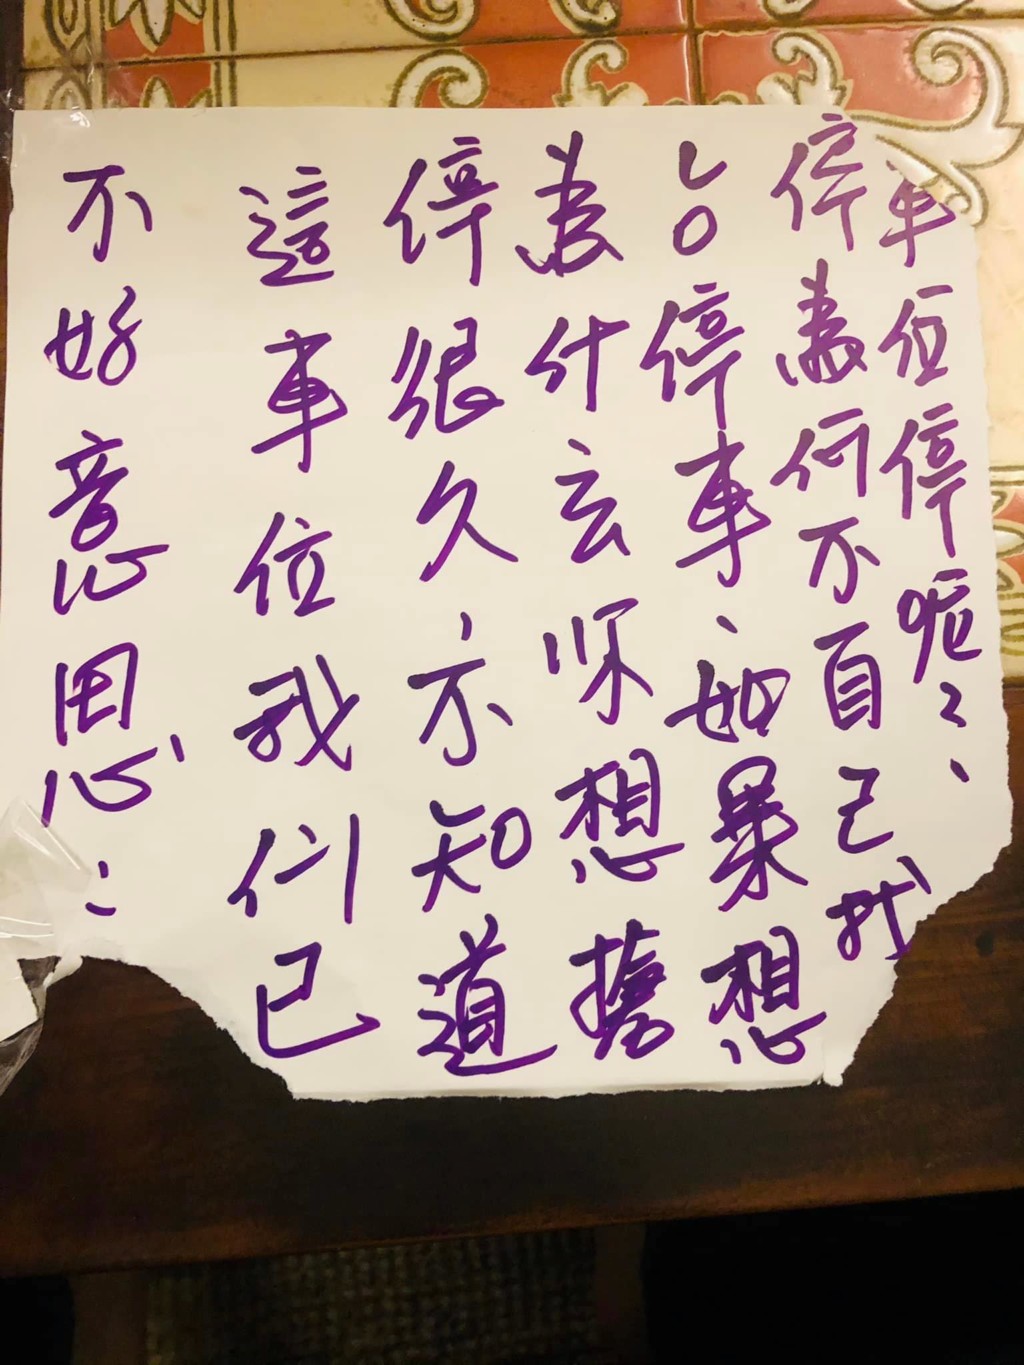 不好意思：
這車位我們已
停很久，不知道
為什么你想搶
占停車、如果想
停為何不自己找
車位停呢？、